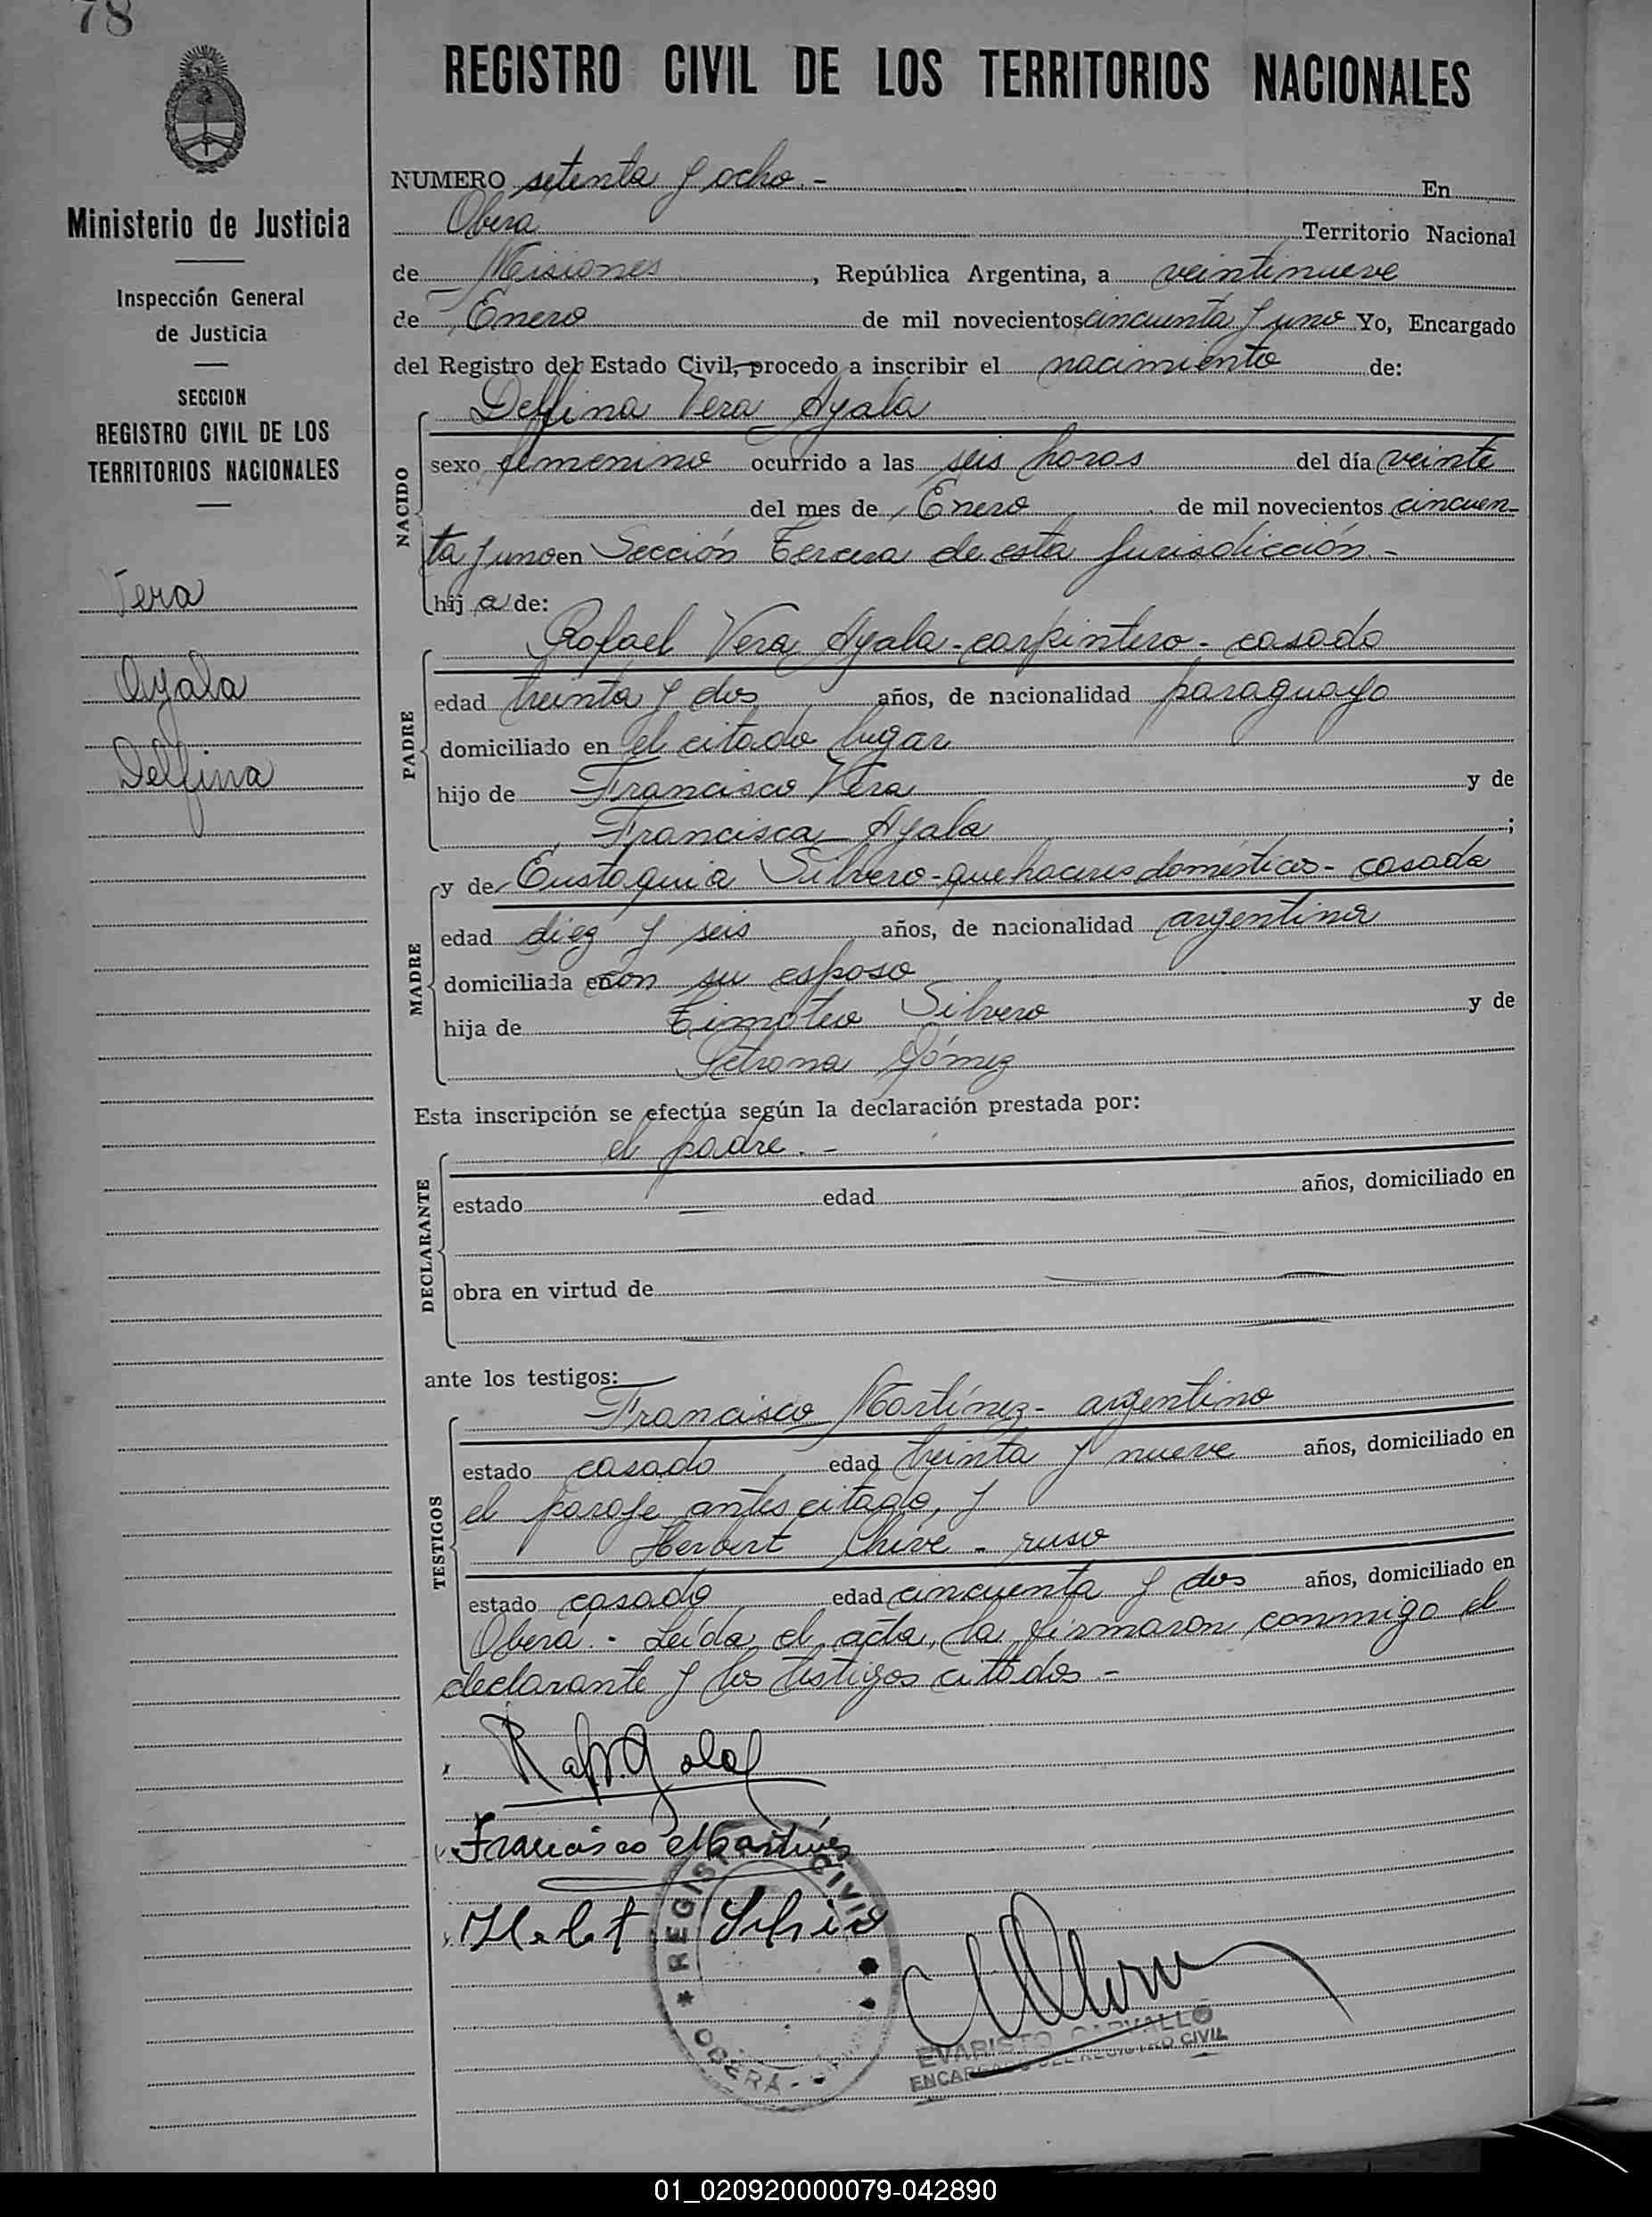 78
REGISTRO CIVIL DE LOS TERRITORIOS NACIONALES
Ministerio de Justicia
Inspección General
de Justicia
SECCION
REGISTRO CIVIL DE LOS
TERRITORIOS NACIONALES
Vera
Ayala
Delfina
NUMERO setenta y ocho.- En
Obera Territorio Nacional
de Misiones, República Argentina, a veintinueve
de Enero de mil novecientos cincuenta y uno Yo, Encargado
del Registro del Estado Civil, procedo a inscribir el nacimiento de:
Delfina Vera Ayala
NACIDO
sexo femenino ocurrido a las seis horas del día veinte
del mes de Enero de mil novecientos cincuen-
ta y uno en Sección Tercera de esta Jurisdicción.-
hija de:
Rafael Vera Ayala-carpintero-casado
PADRE
edad treinta y dos años, de nacionalidad paraguayo
domiciliado en el citado lugar
hijo de Francisco Vera y de
Francisca Ayala;
y de Eustaquia Silvero-quehaceres domésticos-casada
MADRE
edad diez y seis años, de nacionalidad argentina
domiciliada en con su esposo
hija de Timoteo Silvero y de
Petrona Gómez
Esta inscripción se efectúa según la declaración prestada por:
el padre.-
DECLARANTE
estado edad años, domiciliado en
obra en virtud de
ante los testigos:
Francisco Martínez-argentino
TESTIGOS
estado casado edad treinta y nueve años, domiciliado en
el paraje antes citado, y
Herbert Chive-ruso
estado casado edad cincuenta y dos años, domiciliado en
Oberá.- Leída el acta, la firmaron conmigo el
declarante y los testigos citados.-
Francisco Martínez
REGISTRO CIVIL
OBERA
EVARISTO CARVALLO
ENCARGADO DEL REGISTRO CIVIL
01_020920000079-042890